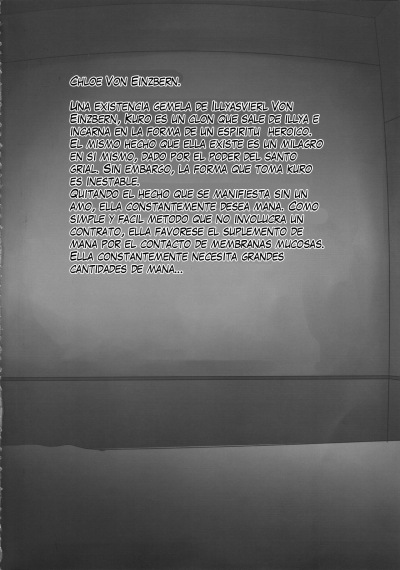 Chloe Von Einzbern.
Una existencia gemela de Illyasvierl Von
Einzbern, Kuro es un clon que sale de Illya e
incarna en la forma de un espiritu heroico.
El mismo hecho que ella existe es un milagro
en si mismo, dado por el poder del santo
grial. Sin embargo, la forma que toma Kuro
es inestable.
Quitando el hecho que se manifiesta sin un
amo, ella constantemente desea mana. Como
simple y facil metodo que no involucra un
contrato, ella favorese el suplemento de
mana por el contacto de membranas mucosas.
Ella constantemente necesita grandes
cantidades de mana...